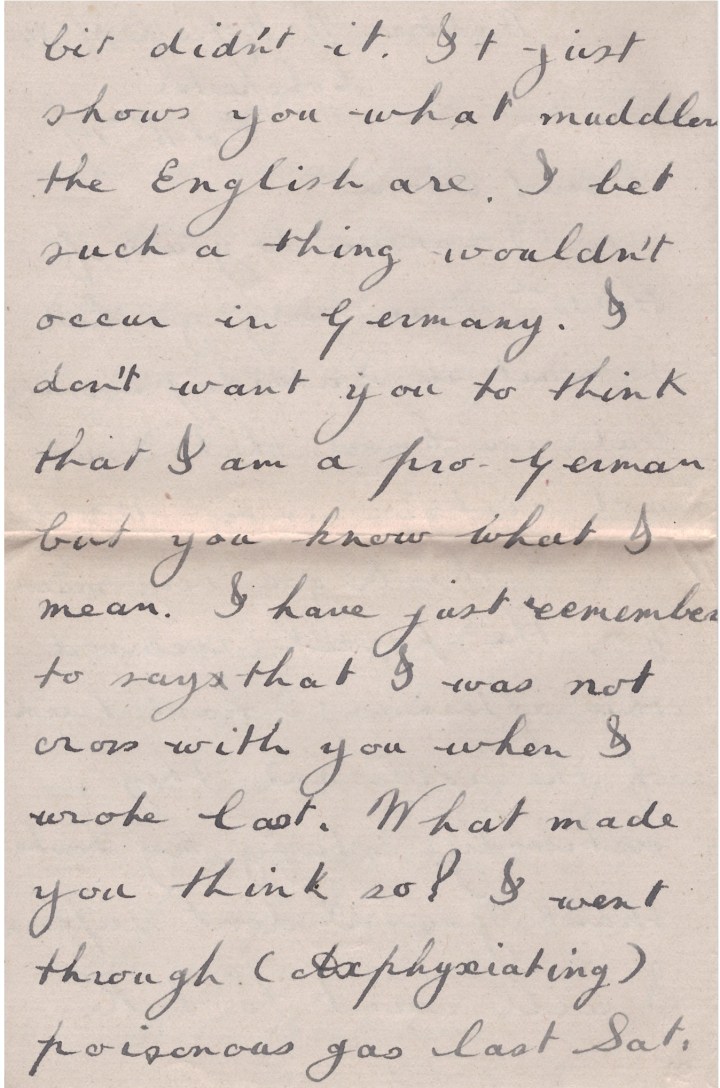 bit didn't it. It just
shows you what muddlers
the English are. I bet
such a thing wouldn't
occur in Germany. I
don't want you to think
that I am a pro-German
but you know what I
mean. I have just remember
to say that I was not
cross with you when I
wrote last. What made
you think so? I went
through (asphyxiating)
poisonous gas last Sat.